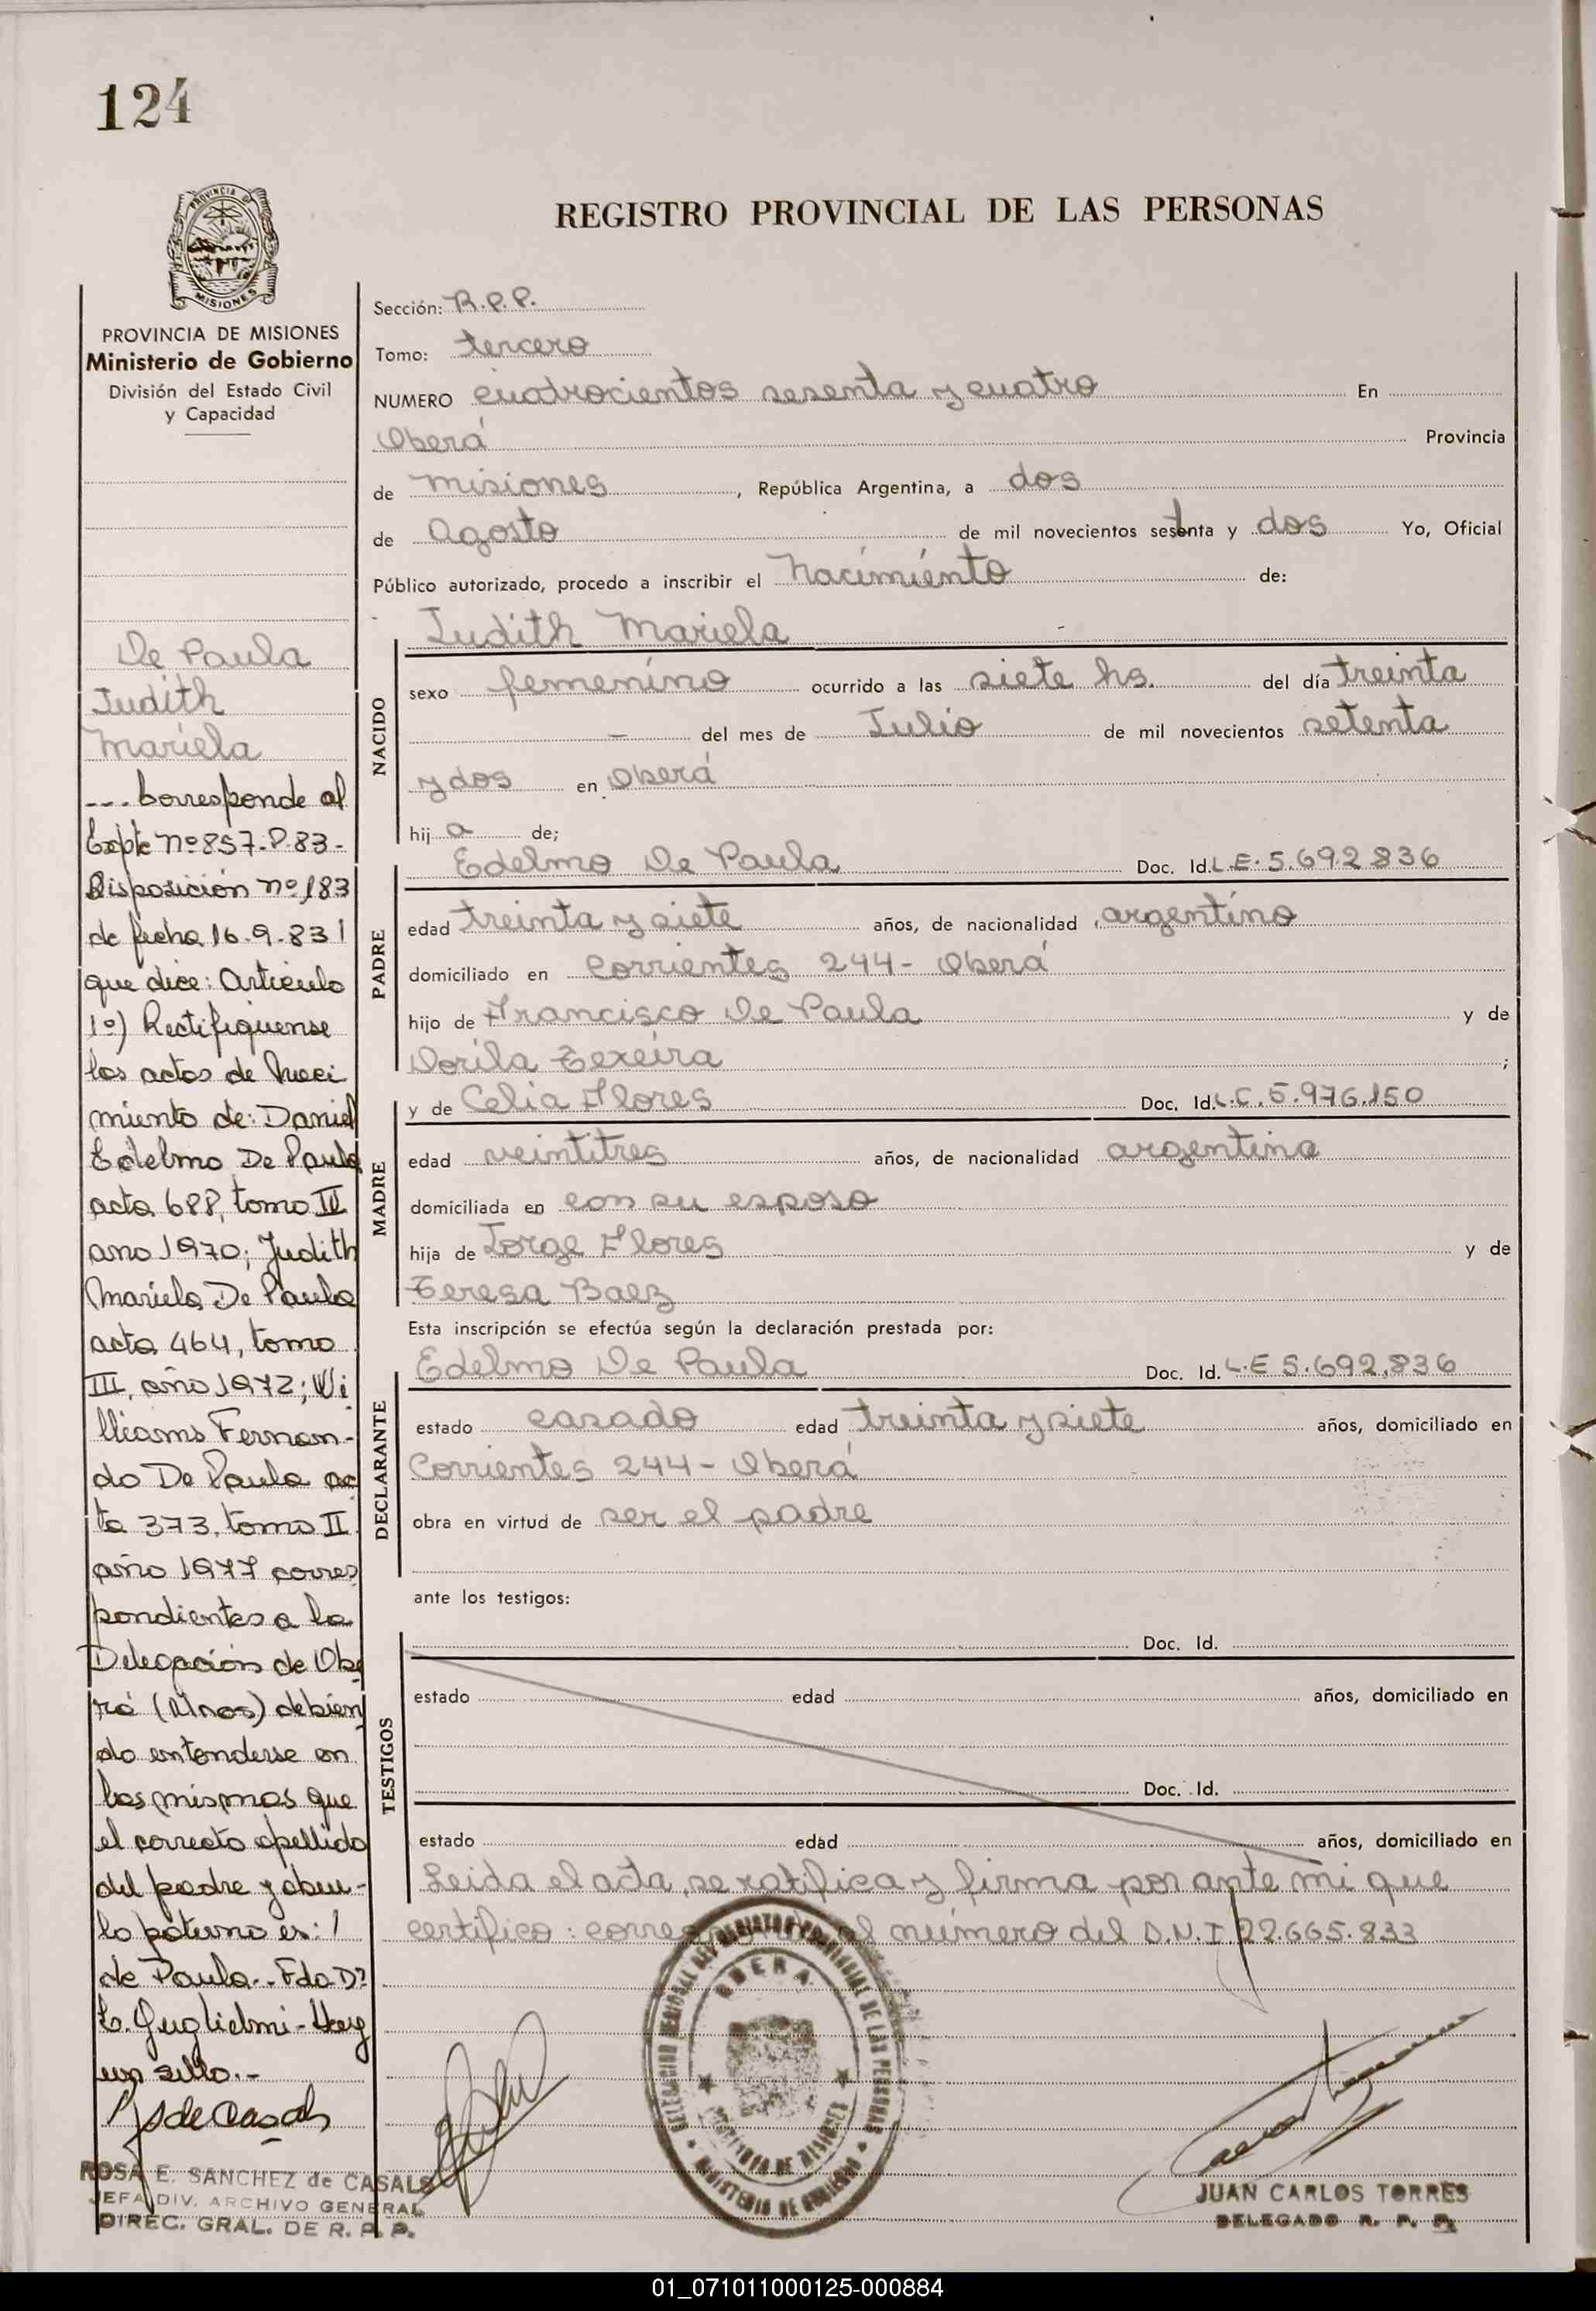 124
PROVINCIA DE
MISIONES
REGISTRO PROVINCIAL DE LAS PERSONAS
PROVINCIA DE MISIONES
Ministerio de Gobierno
División del Estado Civil
y Capacidad
De Paula
Judith
Mariela
... Corresponde al
Expte nº 857-P-83-
Disposición nº 183
de fecha 16.9.83
que dice: Artículo
1º) Rectifiquense
las actas de Naci
miento de: Daniel
Edelmo De Paula
acta 688, tomo II
ano 1970; Judith
Mariela De Paula
acta 464, tomo
III, año 1972; Wi
lliams Fernan-
do De Paula ac
ta 373, tomo II
año 1977 corres
pondientes a la
Delegación de Obe
rá (Mnes) debien
do entenderse en
las mismas que
el correcto apellido
del padre y abue-
lo paterno es:
de Paula.. Fdo Dr
C. Guglielmi - Hay
un sello.-
ROSA E. SANCHEZ de CASALS
JEFA DIV. ARCHIVO GENERAL
DIREC. GRAL. DE R. P. P.
Sección: R.P.P.
Tomo: tercero
NUMERO cuatrocientos sesenta y cuatro En
Oberá Provincia
de Misiones, República Argentina, a dos
de Agosto de mil novecientos setenta y dos Yo, Oficial
Público autorizado, procedo a inscribir el Nacimiento de:
NACIDO
Judith Mariela
sexo femenino ocurrido a las siete hs. del día treinta
— del mes de Julio de mil novecientos setenta
y dos en Oberá
hij a de;
PADRE
Edelmo De Paula Doc. Id. L.E. 5.692.836
edad treinta y siete años, de nacionalidad argentino
domiciliado en Corrientes 244- Oberá
hijo de Francisco De Paula y de
Dorila Texeira ;
MADRE
y de Celia Flores Doc. Id. L.C. 5.976.150
edad veintitres años, de nacionalidad argentina
domiciliada en con su esposo
hija de Jorge Flores y de
Teresa Baez
Esta inscripción se efectúa según la declaración prestada por:
DECLARANTE
Edelmo De Paula Doc. Id. L.E 5.692.836
estado casado edad treinta y siete años, domiciliado en
Corrientes 244- Oberá
obra en virtud de ser el padre
ante los testigos:
TESTIGOS
Doc. Id.
estado edad años, domiciliado en
Doc. Id.
estado edad años, domiciliado en
Leida el acta, se ratifica y firma por ante mi que
certifico: corresponde al número del D.N.I 22.665.833
DELEGACION REGIONAL DEL REGISTRO PROVINCIAL DE LAS PERSONAS
OBERA
PROVINCIA DE MISIONES
MINISTERIO DE GOBIERNO
JUAN CARLOS TORRES
DELEGADO R. P. P.
01_071011000125-000884